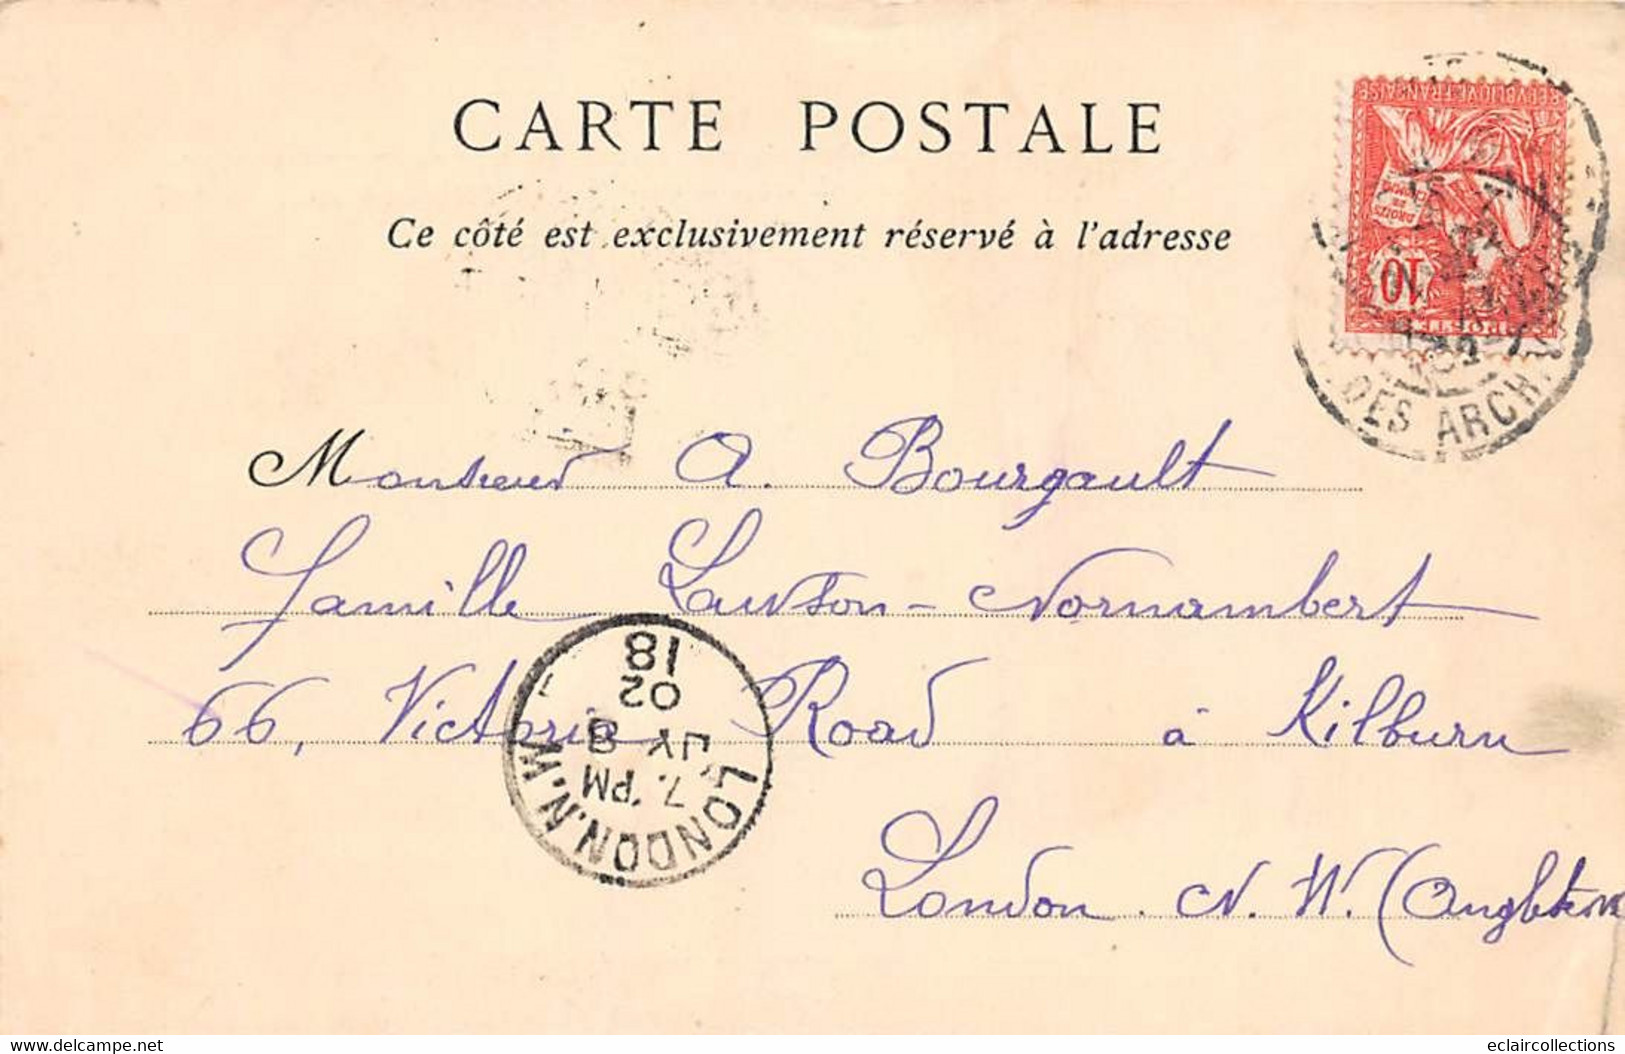 CARTE POSTALE
Ce côté est exclusivement réservé à l'adresse
REPVBLIQVE FRANÇAISE
DROITS DE L'HOMME
10
POSTES
DES ARCH
Monsieur A. Bourgault
famille Lawson-Nornambert
66, Victoria Road à Kilburn
London. N. W. (Angleterre
LONDON.N.W
7. PM
JY 8
02
18
delcampe.net
eclaircollections